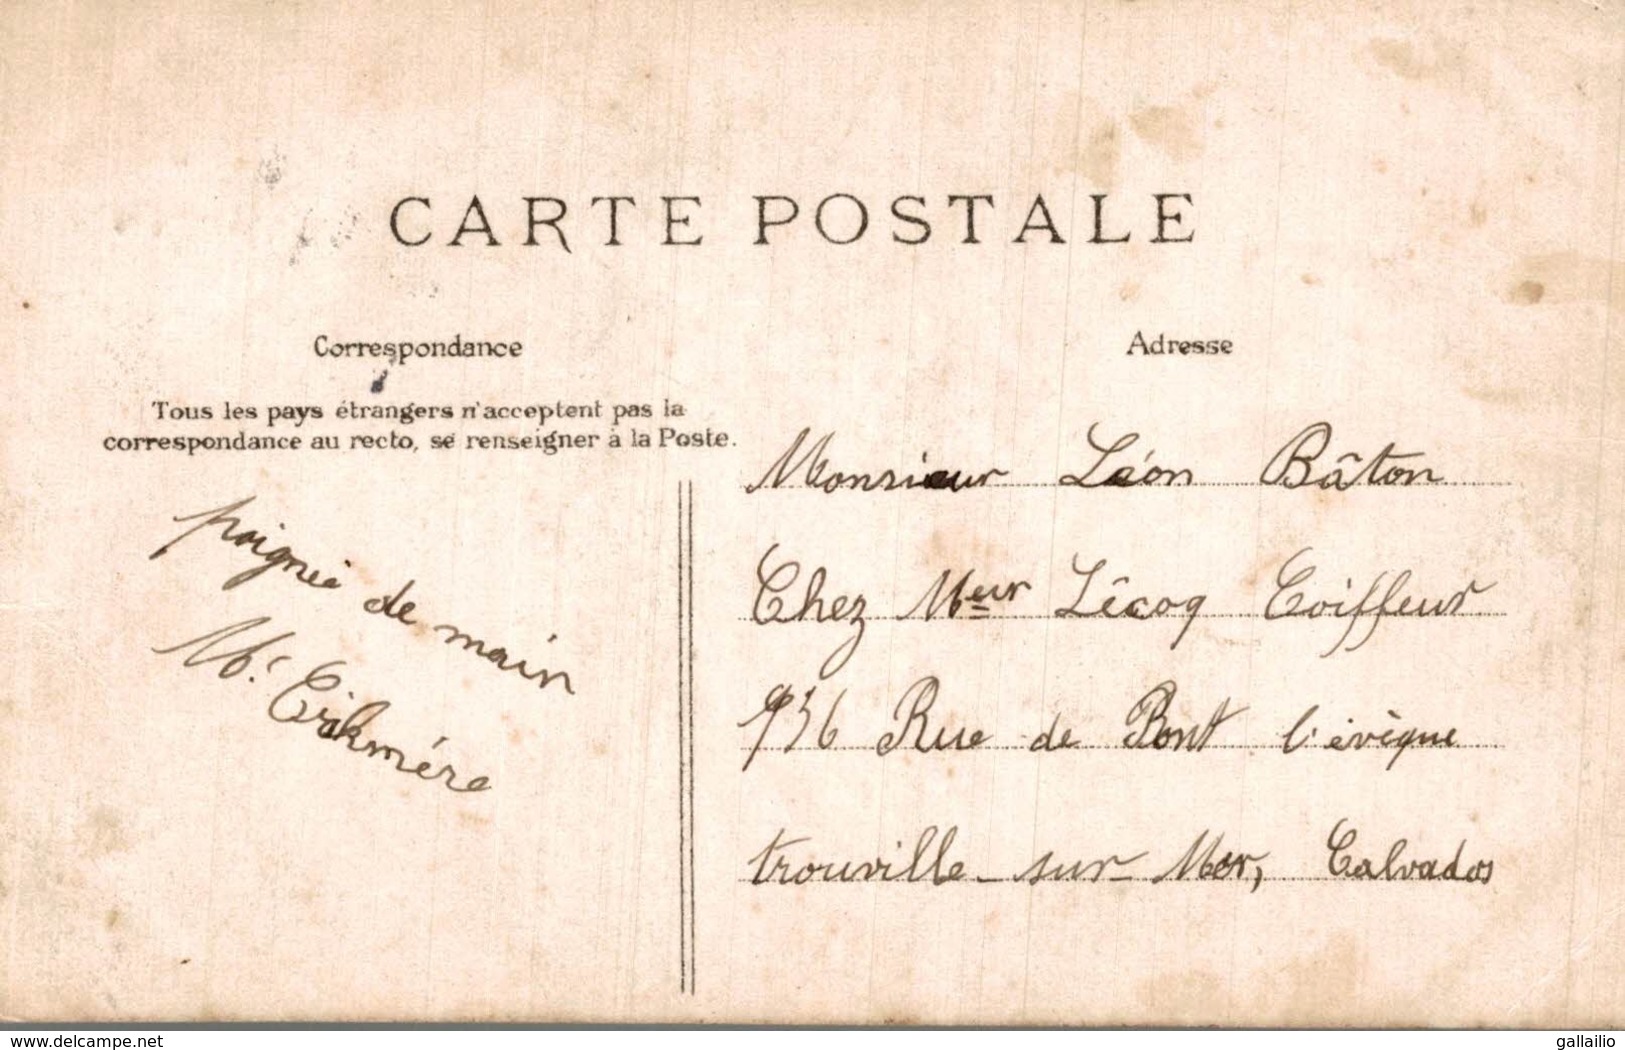 CARTE POSTALE
Correspondance
Tous les pays étrangers n'acceptent pas la
correspondance au recto, se renseigner à la Poste.
poignée de main
Adresse
Monsieur Léon Bâton
Chez Meur Lêcoq Coiffeur
Rue de Pont l'évêque
trouville-sur-Mer, Calvados
www.delcampe.net
gallailio